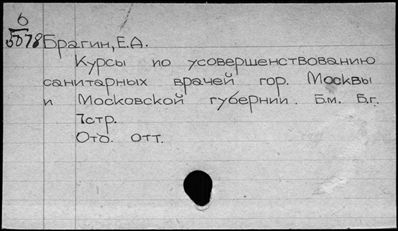 б
5078
Брагин, Е.А.
Курсы по усовершенствованию
санитарных врачей гор. Москвы
и Московской губернии. Б.м. Б.г.
7стр.
Отд. отт.